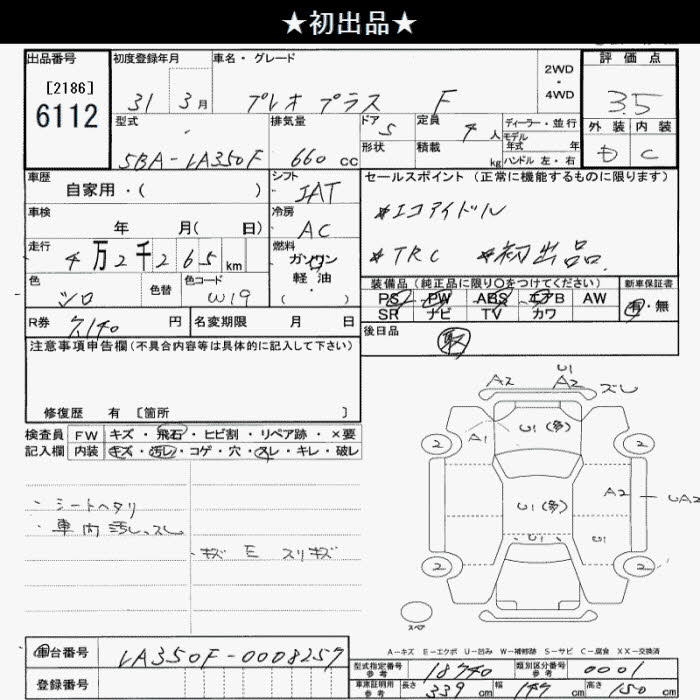 ★初出品★
出品番号 初度登録年月 車名・グレード 2WD ・ 4WD 評価点
[2186]
6112
31 3月 プレオ プラス F 3.5
型式 排気量 ドア 定員 ディーラー・並行 外装 内装
5BA-LA350F 660 cc 5 4人 モデル年式 年 D C
形状 積載 kg ハンドル 左・右
車歴 シフト セールスポイント(正常に機能するものに限ります)
自家用・( ) IAT
*エコアイドル
車検 冷房
年 月( 日) AC
*TRC *初出品
走行 燃料
4万2千265km ガソリン
軽油
・( )
色 色替 色コード 装備品(純正品に限り○をつけてください) 新車保証書
シロ W19 PS PW ABS エアB AW 有・無
SR ナビ TV カワ
R券 7,140円 名変期限 月 日 後日品
取
注意事項申告欄(不具合内容等は具体的に記入して下さい)
修復歴 有 [箇所 ]
検査員 FW キズ・飛石・ヒビ割・リペア跡・×要
記入欄 内装 キズ・汚レ・コゲ・穴・スレ・キレ・破レ
・シートヘタリ
・車内汚レ、スレ
・キズ E スリキズ
A2 U1 A2 ズレ
A1 U1(多)
2 2
U1(多) A2 UA2
U1 U1
2 2
スペア
A-キズ E-エクボ U-凹み W-補修跡 S-サビ C-腐食 XX-交換済
車台番号 LA350F-0008257
登録番号
型式指定番号 参考 18740 類別区分番号 参考 0001
車庫証明用 参考 長さ 339 cm 幅 147 cm 高さ 150 cm